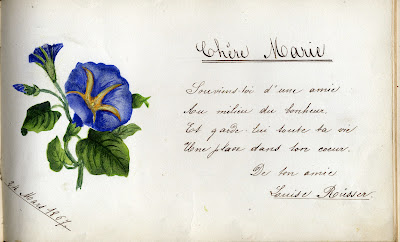 Chère Marie
Souviens-toi d'une amie
Au milieu du bonheur,
Et garde-lui toute ta vie
Une place dans ton coeur.
De ton amie
Louise Rüsser.
24 Mars 1867